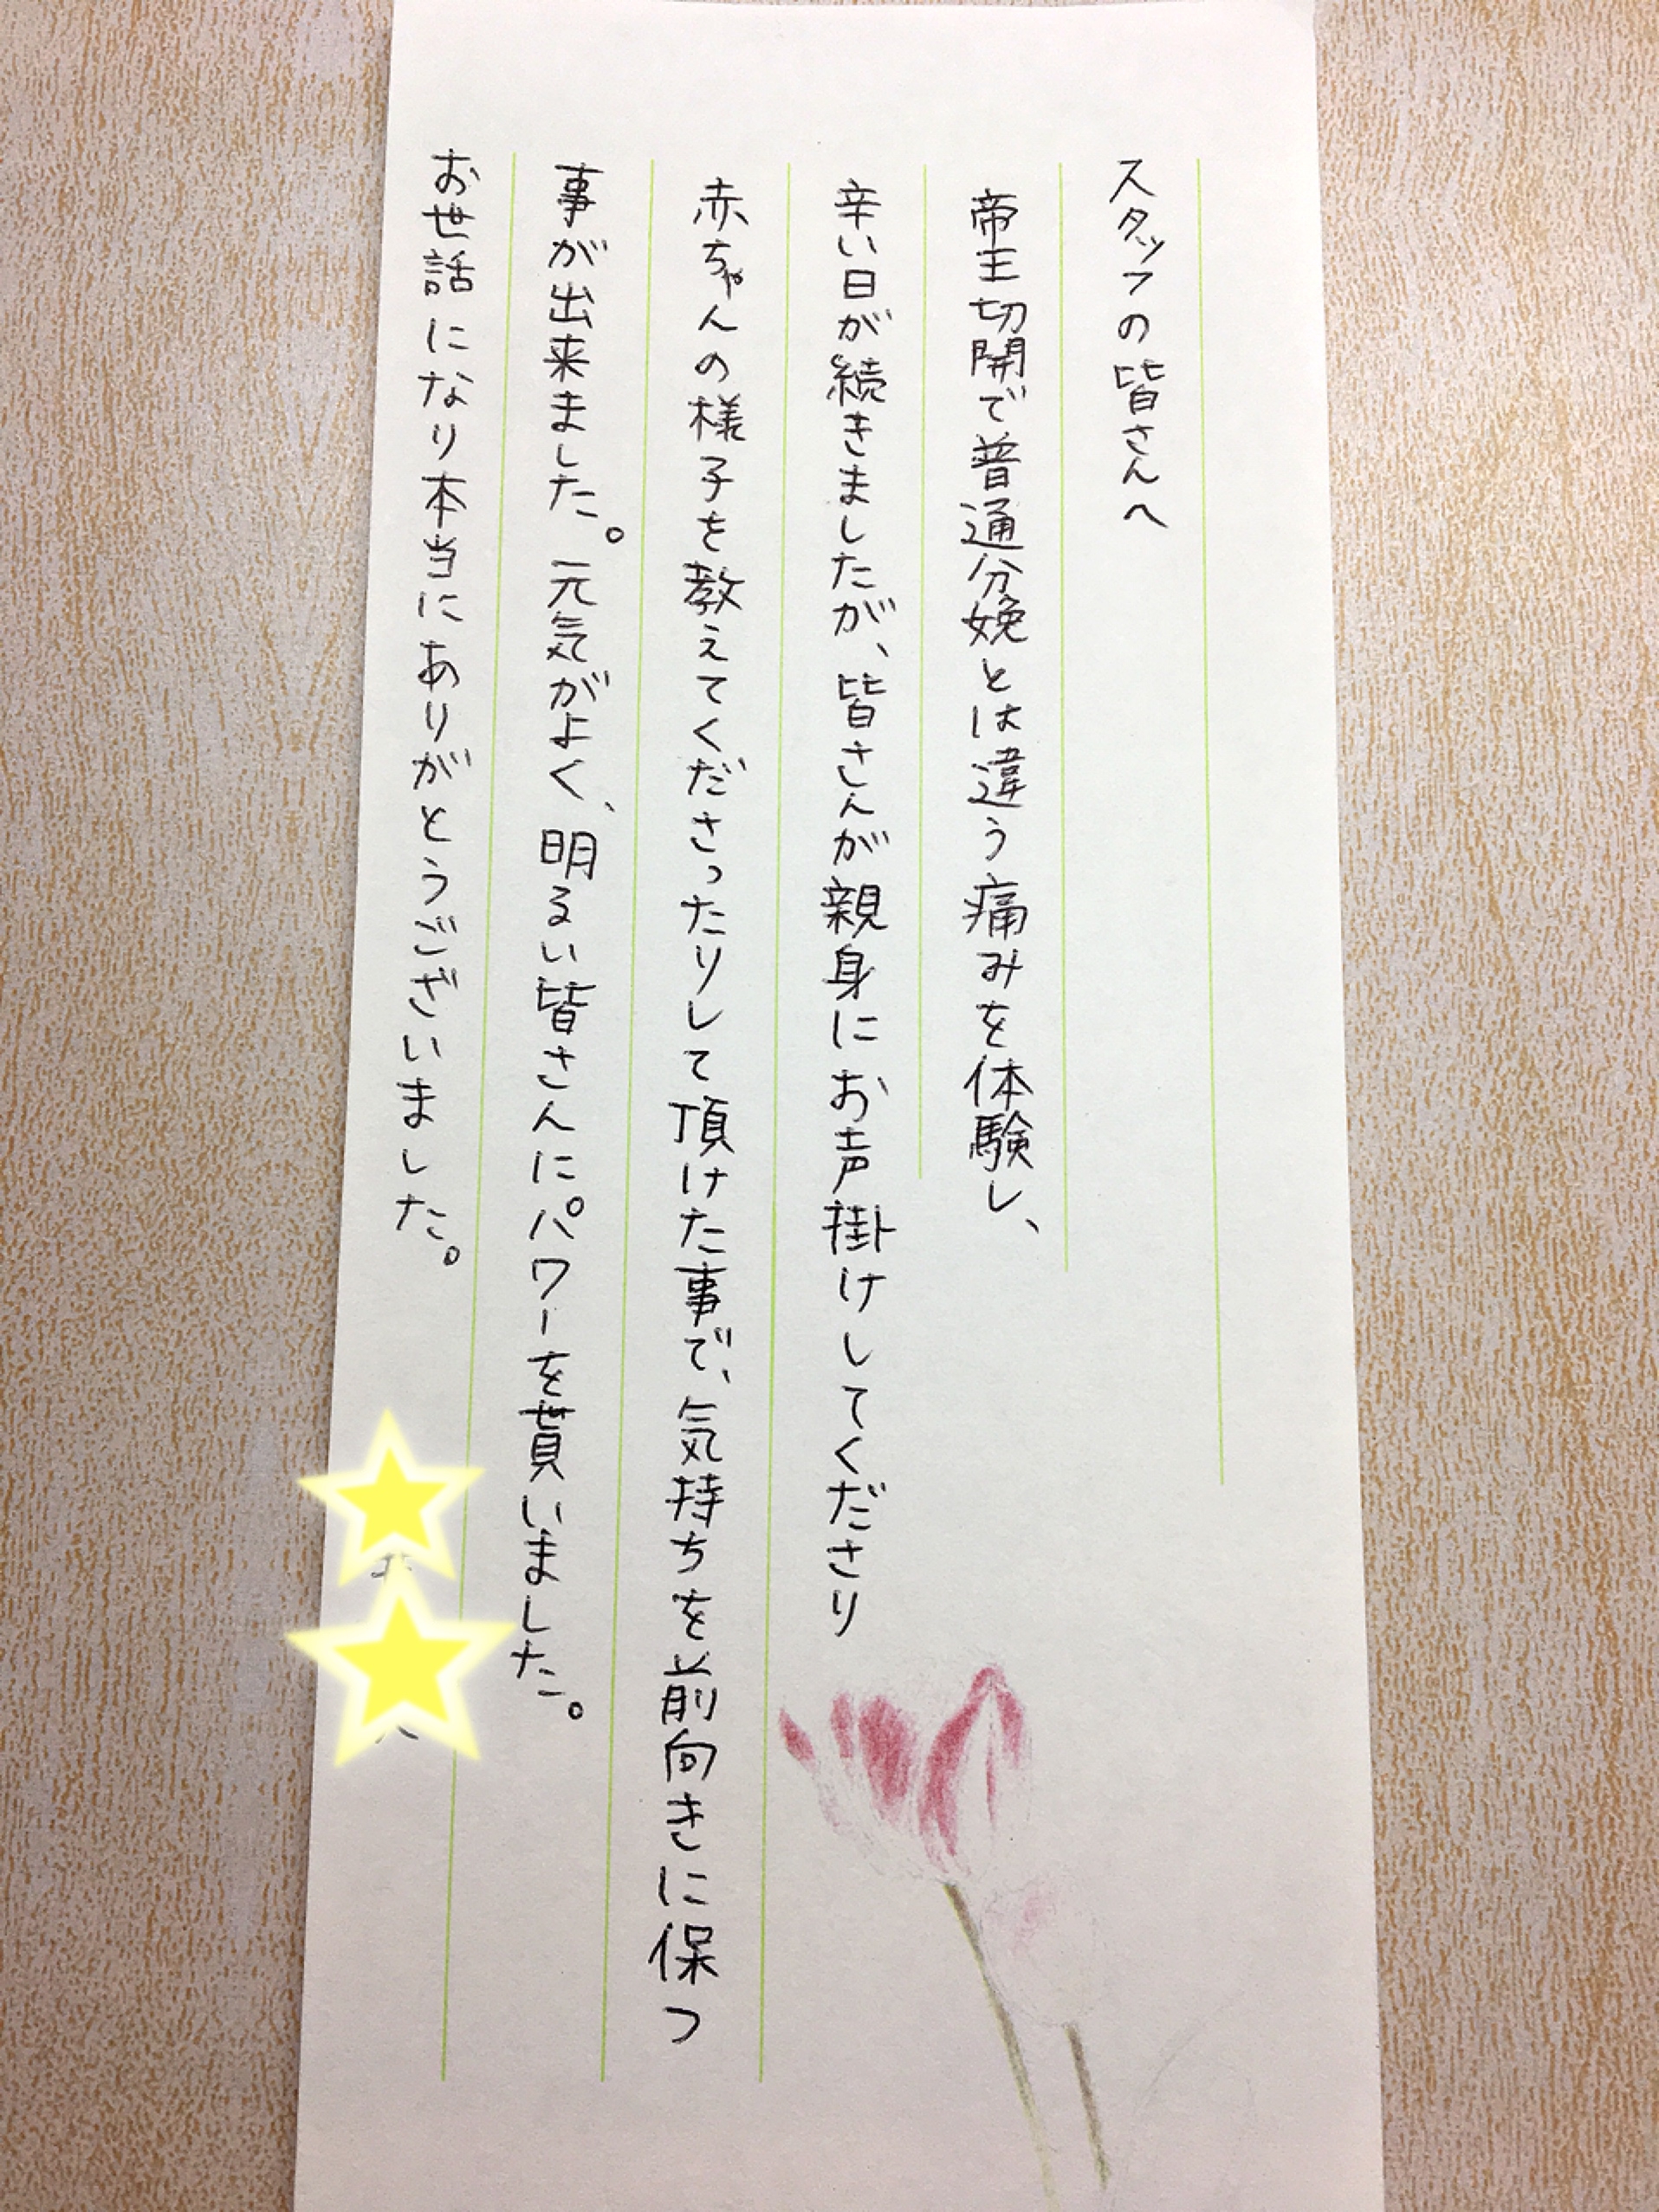 スタッフの皆さんへ
帝王切開で普通分娩とは違う痛みを体験し、
辛い日が続きましたが、皆さんが親身にお声掛けしてくださり
赤ちゃんの様子を教えてくださったりして頂けた事で、気持ちを前向きに保つ
事が出来ました。元気がよく、明るい皆さんにパワーを貰いました。
お世話になり本当にありがとうございました。